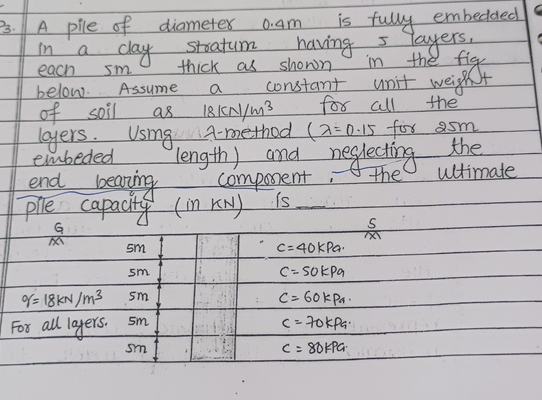 P3. A pile of diameter 0.4m is fully embedded
in a clay stratum having 5 layers,
each 5m thick as shown in the fig
below. Assume a constant unit weight
of soil as 18KN/m³ for all the
layers. Using λ-method (λ=0.15 for 25m
embeded length) and neglecting the
end bearing component, the ultimate
pile capacity (in KN) is __
G S
5m C=40KPa.
5m C=50KPa
γ=18KN/m³ 5m C=60KPa.
For all layers. 5m C=70KPa.
5m C=80KPa.